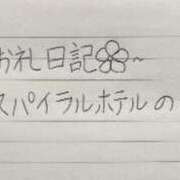 お礼日記~
スパイラルホテルの